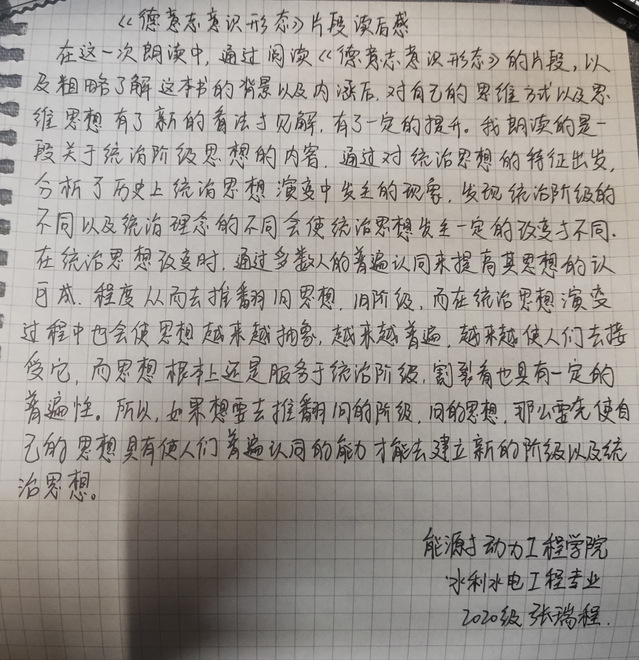 《德意志意识形态》片段读后感
在这一次朗读中,通过阅读《德意志意识形态》的片段,以
及粗略了解这本书的背景以及内涵后,对自己的思维方式以及思
维思想有了新的看法与见解,有了一定的提升。我朗读的是一
段关于统治阶级思想的内容,通过对统治思想的特征出发,
分析了历史上统治思想演变中发生的现象,发现统治阶级的
不同以及统治理念的不同会使统治思想发生一定的改变与不同.
在统治思想改变时,通过多数人的普遍认同来提高其思想的认
可成.程度从而去推翻旧思想.旧阶级,而在统治思想演变
过程中也会使思想越来越抽象,越来越普遍,越来越使人们去接
受它,而思想根本上还是服务于统治阶级,割裂看也具有一定的
普遍性。所以,如果想要去推翻旧的阶级.旧的思想,那么要先使自
己的思想具有使人们普遍认同的能力才能去建立新的阶级以及统
治思想。
能源与动力工程学院
水利水电工程专业
2020级 张瑞程.